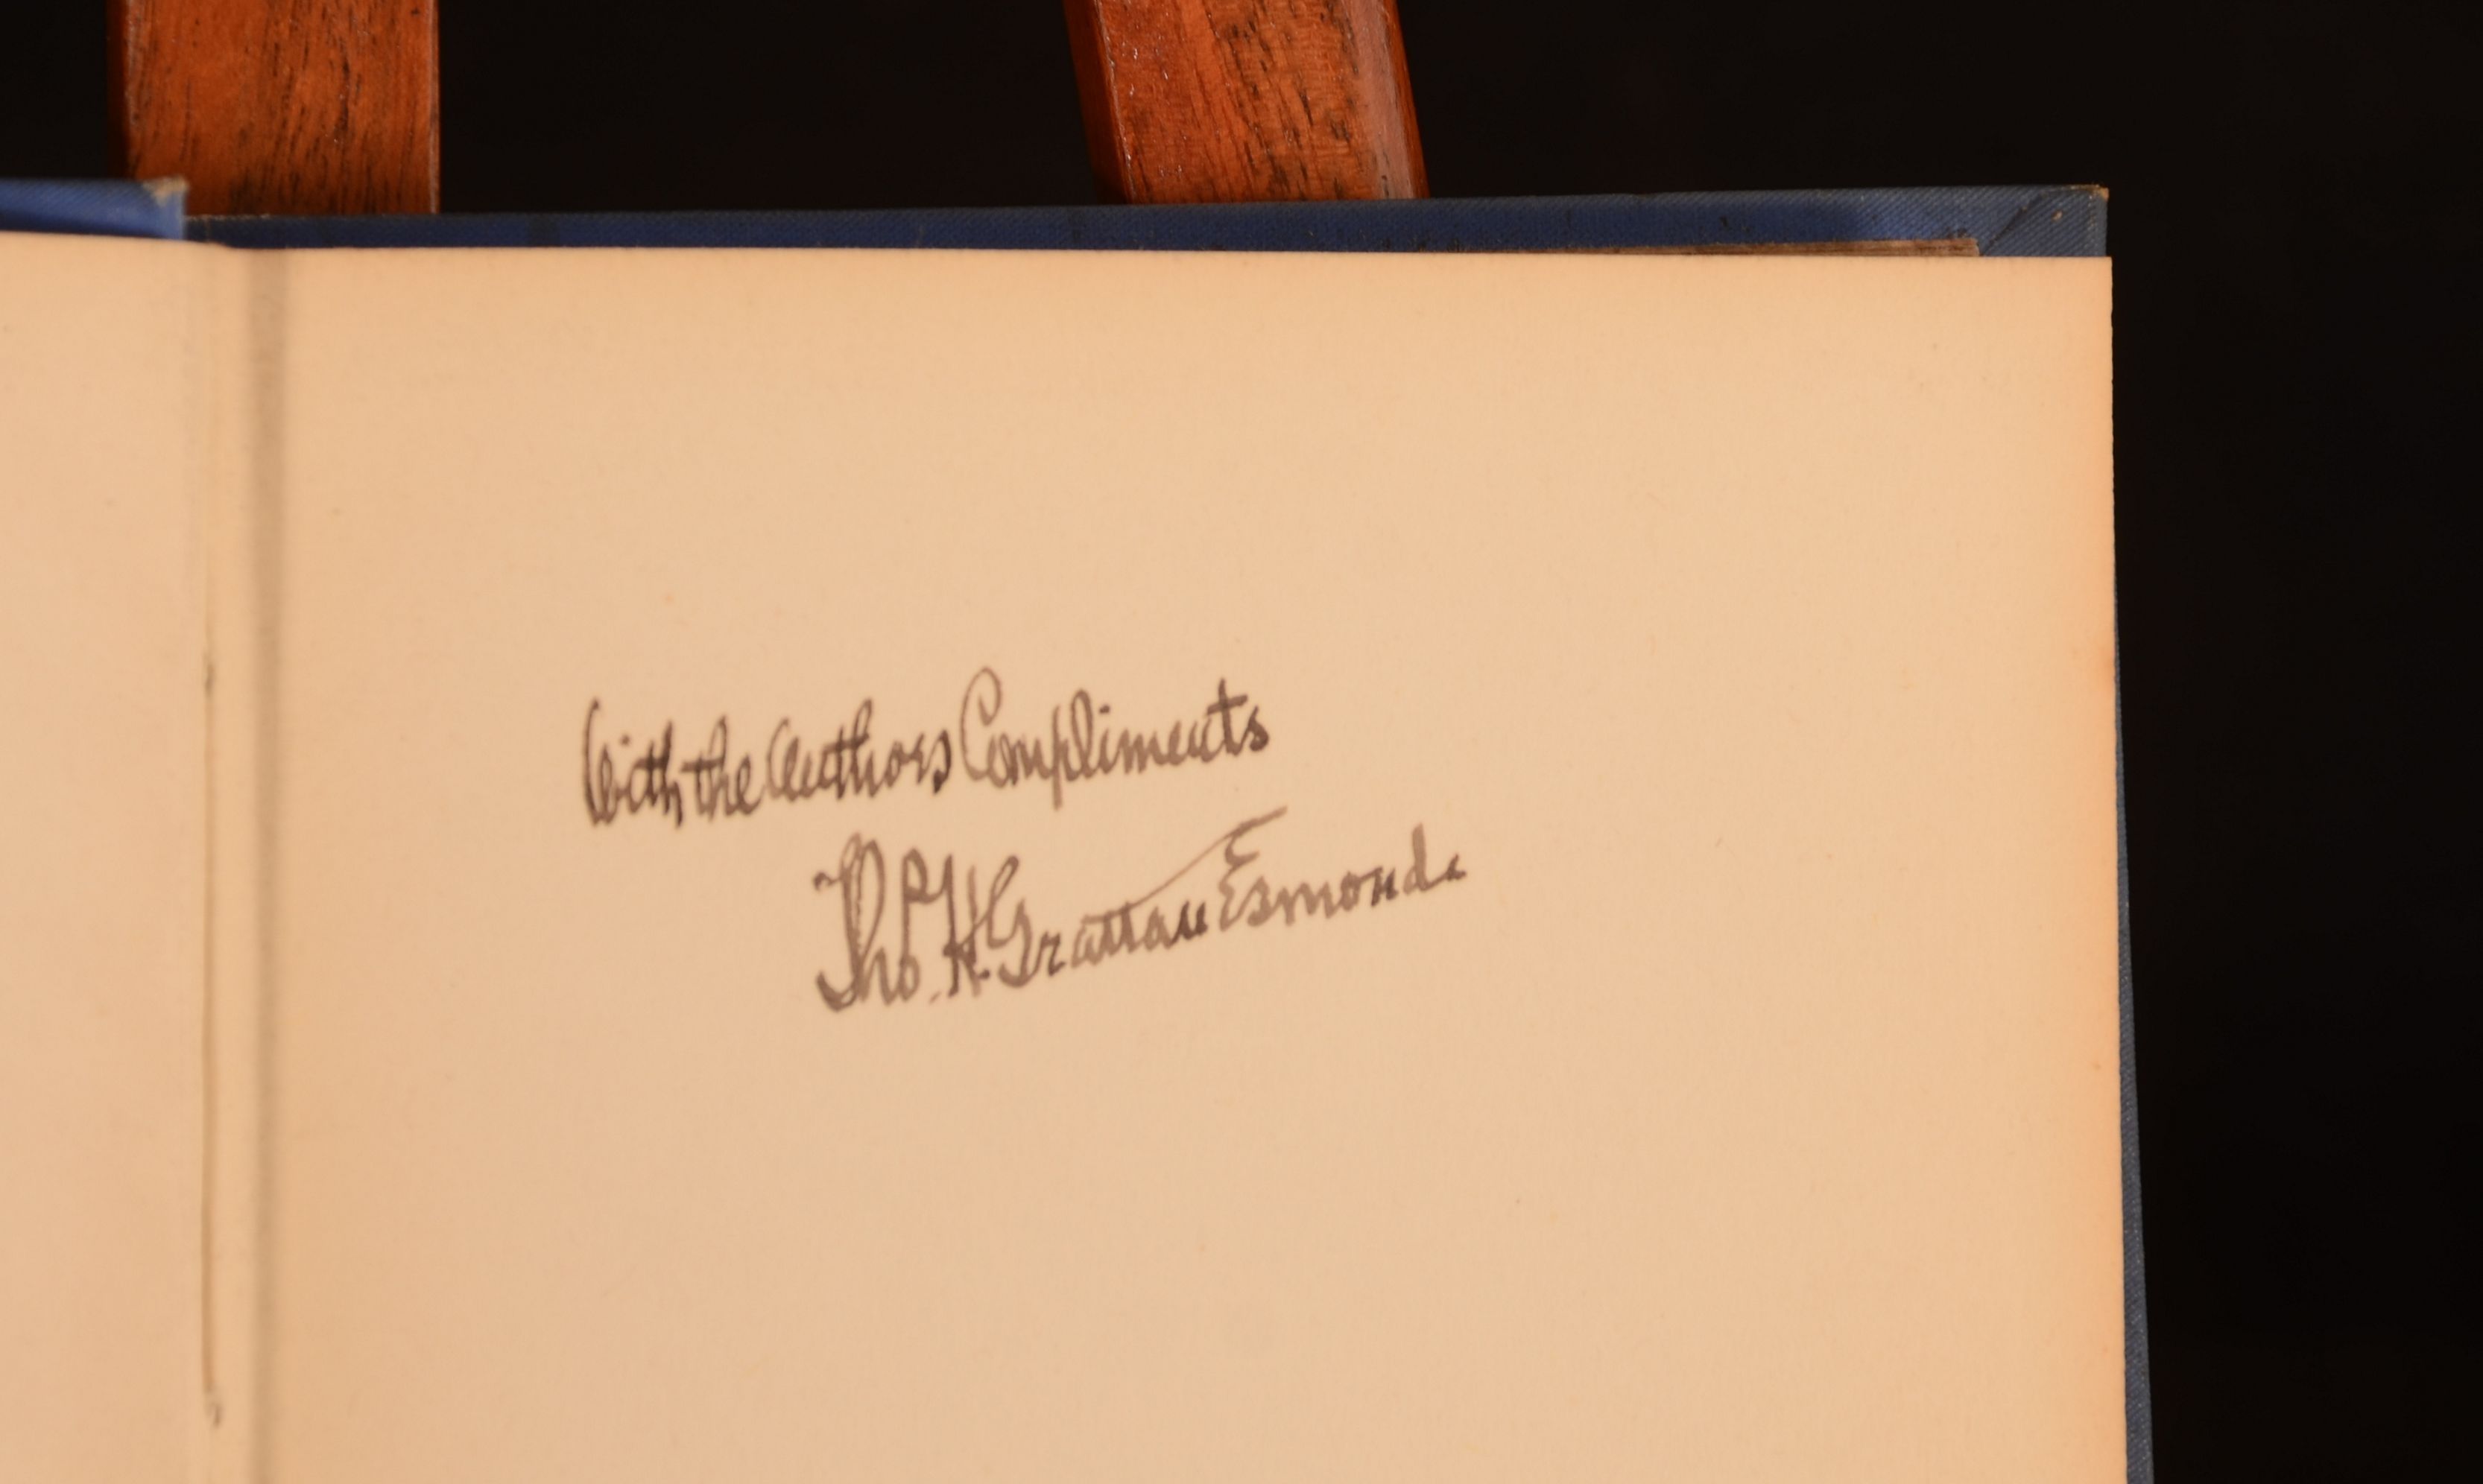 With the Authors Compliments
Tho. H. Grattan Esmonde